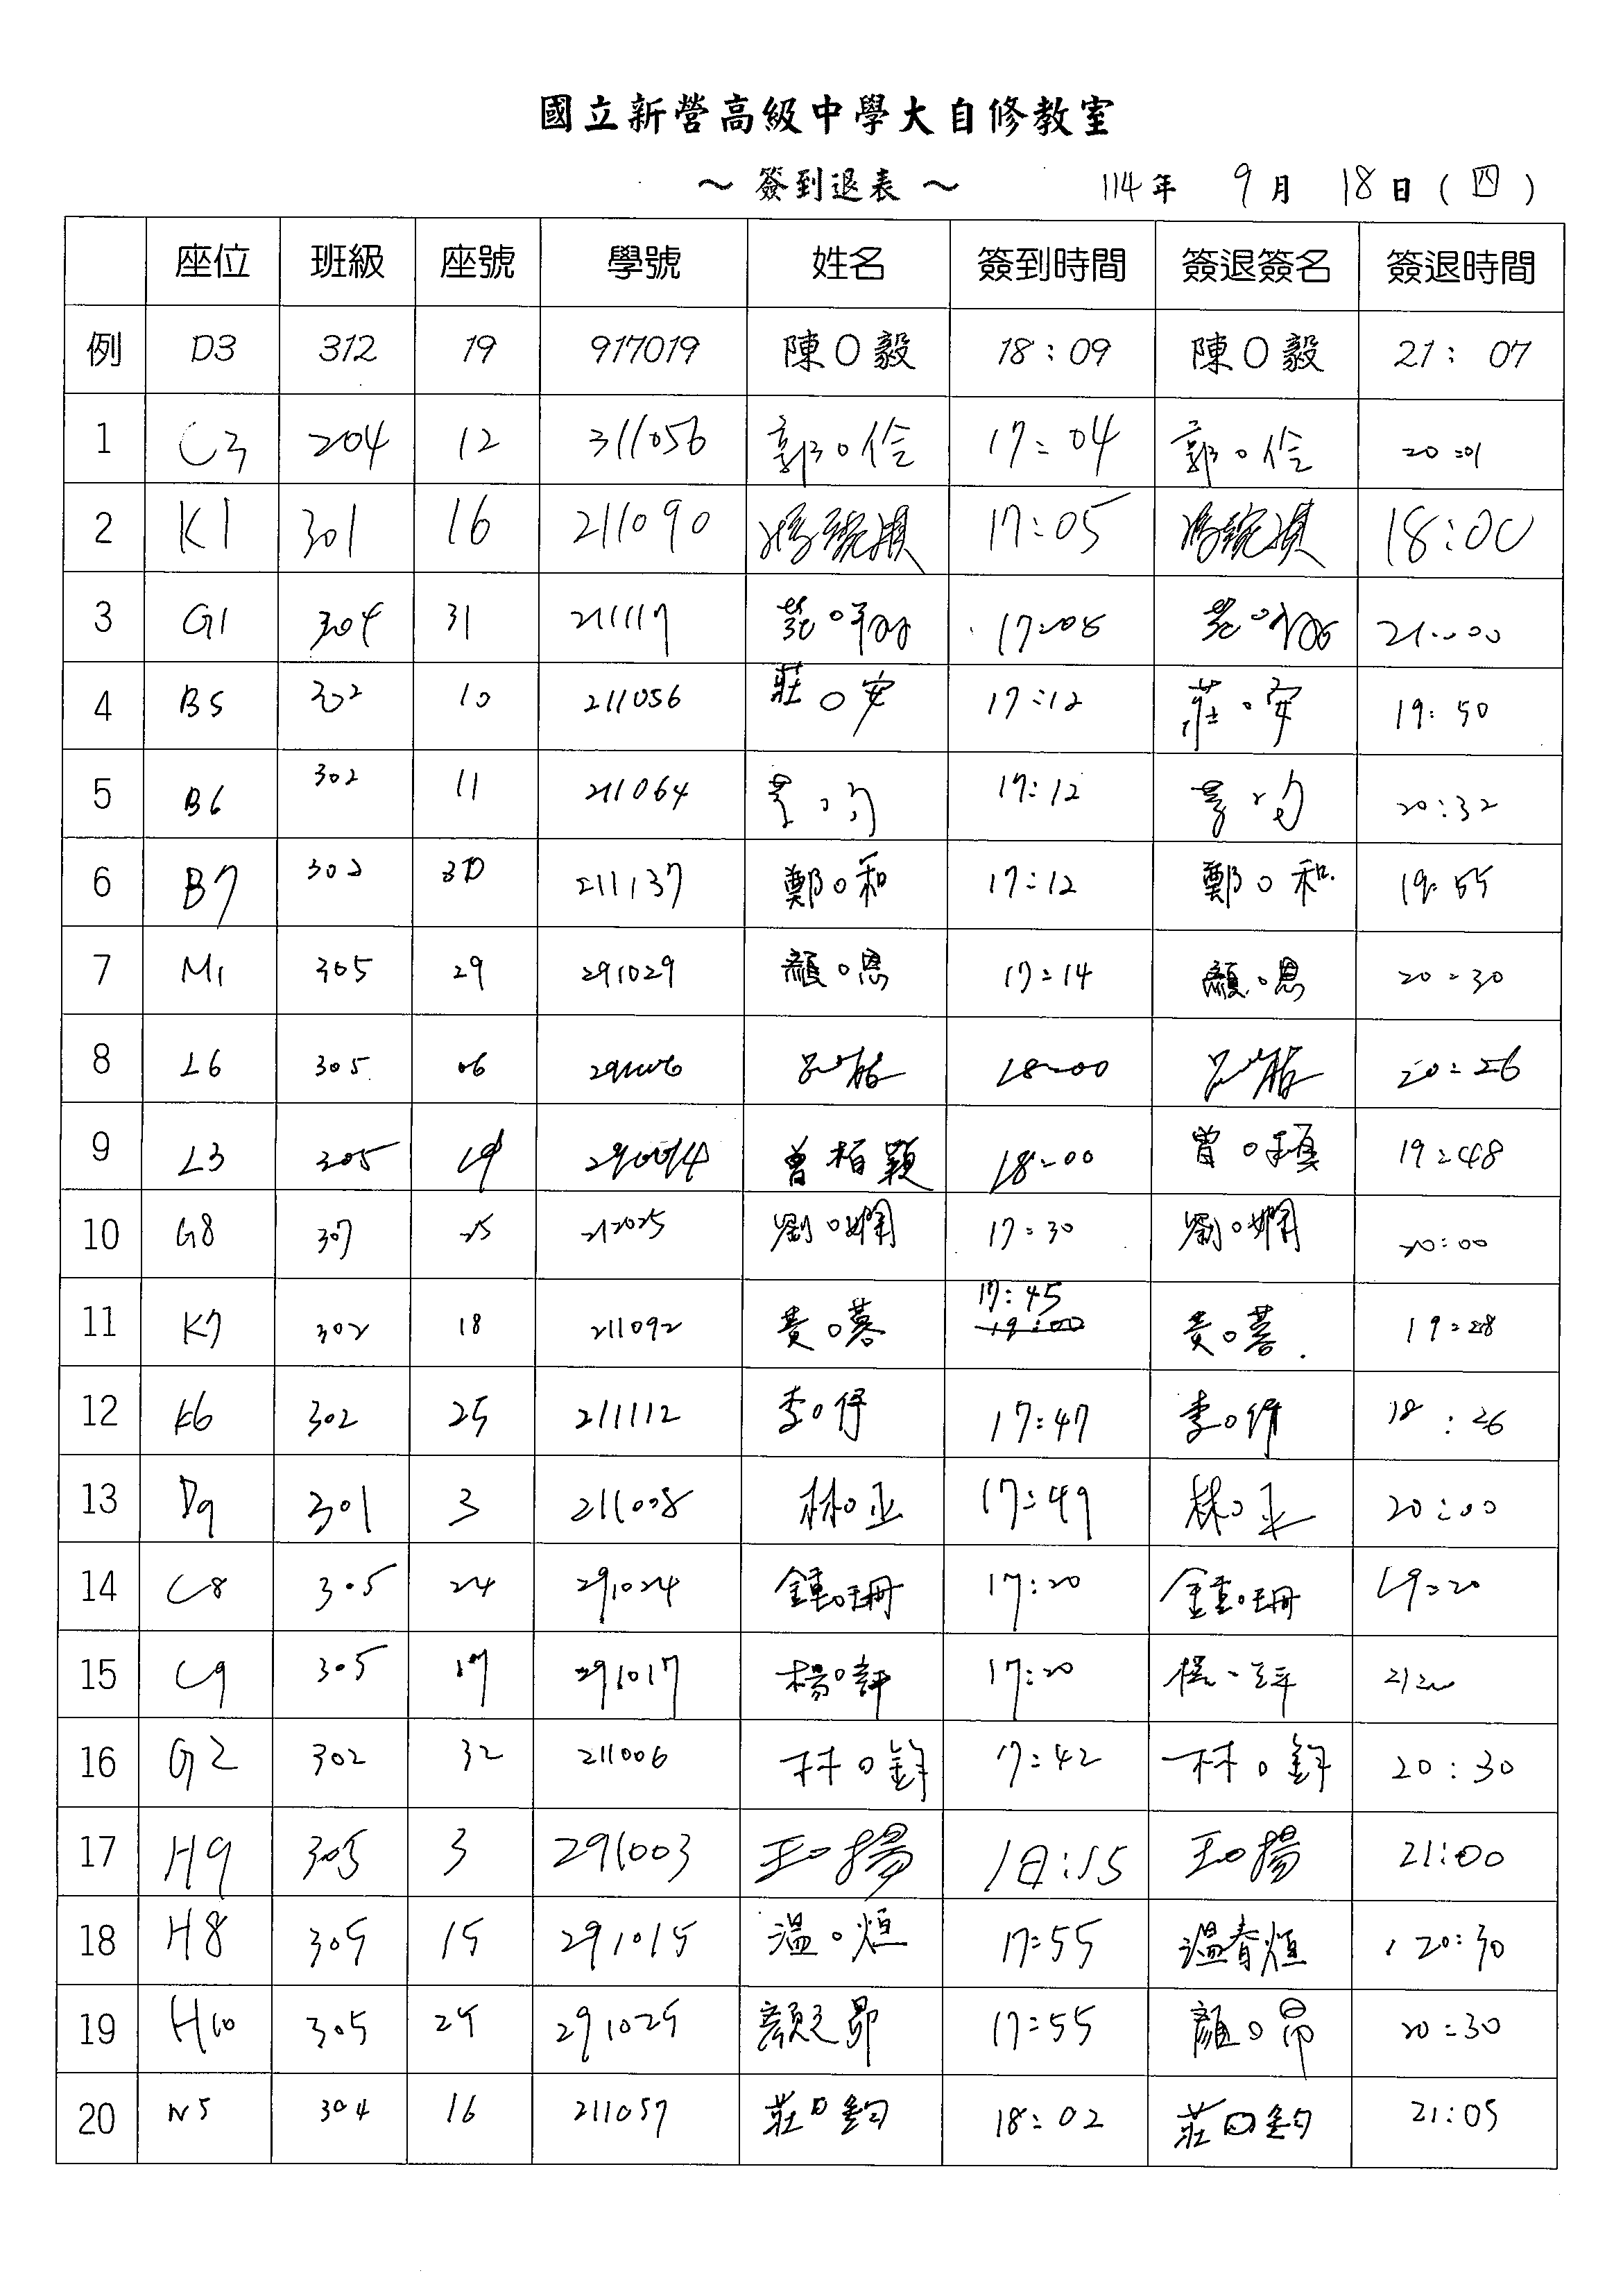 國立新營高級中學大自修教室
～ 簽到退表 ～ 114年 9月 18日(四)
座位 班級 座號 學號 姓名 簽到時間 簽退簽名 簽退時間
例 D3 312 19 917019 陳○毅 18:09 陳○毅 21:07
1 C3 204 12 311056 郭○伶 17:04 郭○伶 20:01
2 K1 301 16 211090 17:05 18:00
3 G1 304 31 211117 21:00
4 B5 302 10 211056 莊○安 17:12 莊○安 19:50
5 B6 302 11 211064 17:12 20:32
6 B7 302 30 211137 鄭○和 17:12 鄭○和 19:55
7 M1 305 29 291029 顏○恩 17:14 顏○恩 20:30
8 L6 305 06 291006 18:00 20:26
9 L3 305 19 曾柏穎 18:00 曾○穎 19:48
10 G8 307 25 212025 劉○嫻 17:30 劉○嫻 20:00
11 K7 302 18 211092 黃○蓉 17:45 19:00 黃○蓉 19:28
12 K6 302 25 211112 李○伃 17:47 李○伃 18:26
13 D9 301 3 211008 林○正 17:49 林○正 20:00
14 C8 305 24 291024 鍾○珊 17:20 鍾○珊 19:20
15 C9 305 17 291017 楊○評 17:20 21:00
16 G2 302 32 211006 林○鈞 17:42 林○鈞 20:30
17 H9 305 3 291003 王○揚 18:15 王○揚 21:00
18 H8 305 15 291015 溫○烜 17:55 溫春烜 20:30
19 H10 305 25 291025 顏○昴 17:55 顏○昴 20:30
20 N5 304 16 211057 莊○鈞 18:02 莊○鈞 21:05